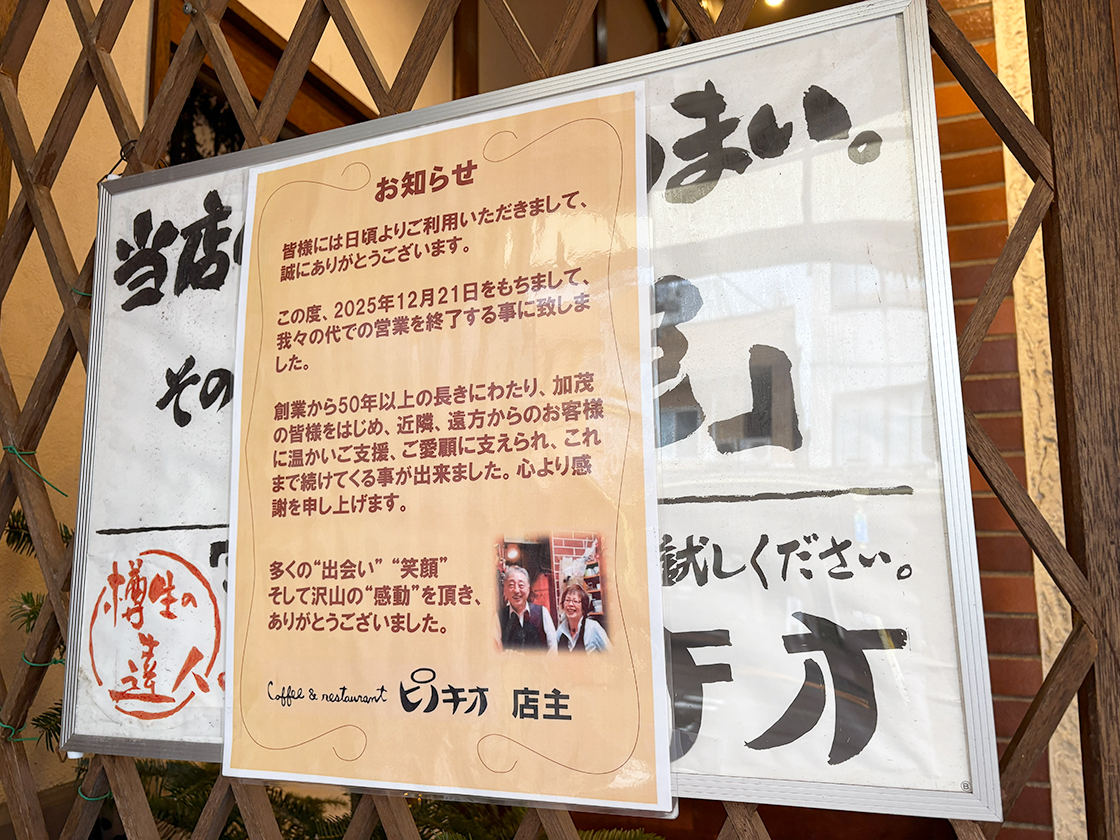 お知らせ
皆様には日頃よりご利用いただきまして、
誠にありがとうございます。
この度、2025年12月21日をもちまして、
我々の代での営業を終了する事に致しま
した。
創業から50年以上の長きにわたり、加茂
の皆様をはじめ、近隣、遠方からのお客様
に温かいご支援、ご愛顧に支えられ、これ
まで続けてくる事が出来ました。心より感
謝を申し上げます。
多くの“出会い” “笑顔”
そして沢山の“感動”を頂き、
ありがとうございました。
Coffee & restaurant ピノキオ 店主
当店
まい。
その
試しください。
樽生の
達人
キオ